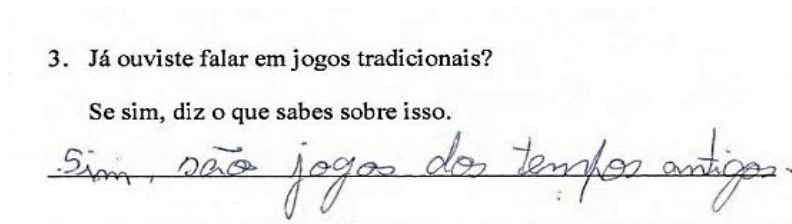 3. Já ouviste falar em jogos tradicionais?
Se sim, diz o que sabes sobre isso.
Sim, são jogos dos tempos antigos.